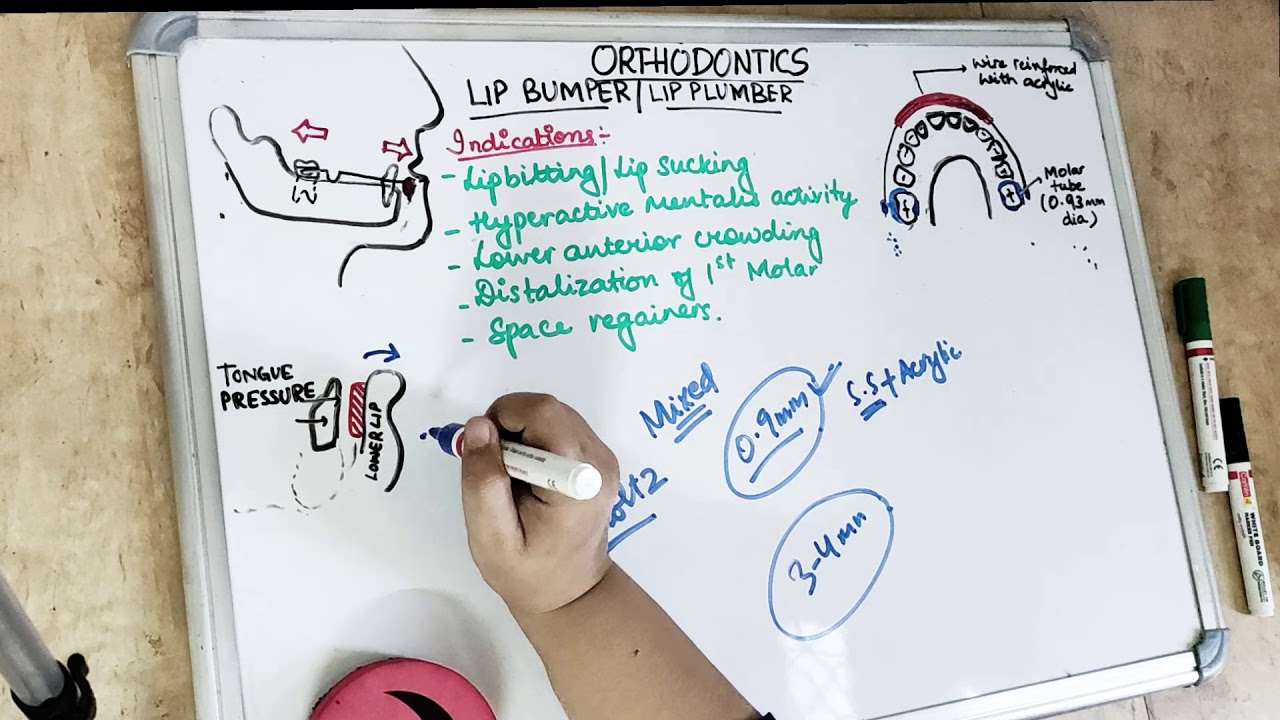 ORTHODONTICS
LIP BUMPER/LIP PLUMBER
wire reinforced
with acrylic
Indications:-
- Lipbitting/Lip sucking
- Hyperactive Mentalis activity
- Lower anterior crowding
- Distalization of 1st Molar
- Space regainers.
Molar
tube
(0.93mm
dia)
TONGUE
PRESSURE
LOWER LIP
Mixed
0.9mm
S.S + Acrylic
3-4mm
WHITE BOARD